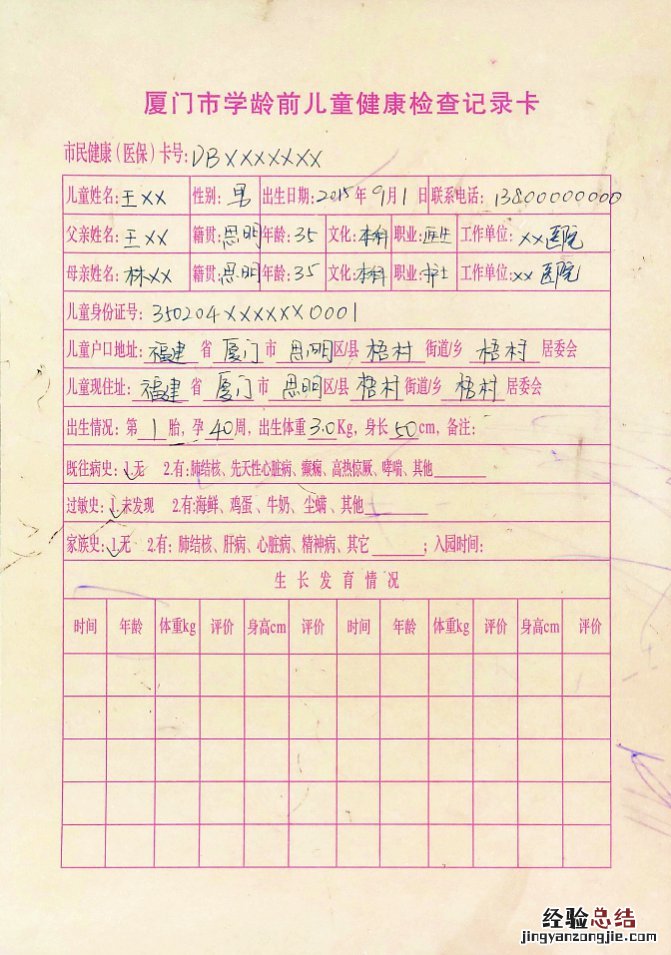 厦门市学龄前儿童健康检查记录卡
市民健康（医保）卡号：DBXXXXXXX
儿童姓名：王XX 性别：男 出生日期：2015年9月1日 联系电话：13800000000
父亲姓名：王XX 籍贯：思明 年龄：35 文化：本科 职业：医生 工作单位：XX医院
母亲姓名：林XX 籍贯：思明 年龄：35 文化：本科 职业：护士 工作单位：XX医院
儿童身份证号：350204XXXXXX0001
儿童户口地址：福建省厦门市思明区/县梧村街道/乡梧村居委会
儿童现住址：福建省厦门市思明区/县梧村街道/乡梧村居委会
出生情况：第1胎，孕40周，出生体重3.0Kg，身长50cm，备注：
既往病史：1.无 2.有：肺结核、先天性心脏病、癫痫、高热惊厥、哮喘、其他
过敏史：1.未发现 2.有：海鲜、鸡蛋、牛奶、尘螨、其他
家族史：1.无 2.有：肺结核、肝病、心脏病、精神病、其它；入园时间：
生长发育情况
时间 年龄 体重kg 评价 身高cm 评价 时间 年龄 体重kg 评价 身高cm 评价
经验总结
jingyanzongjie.com